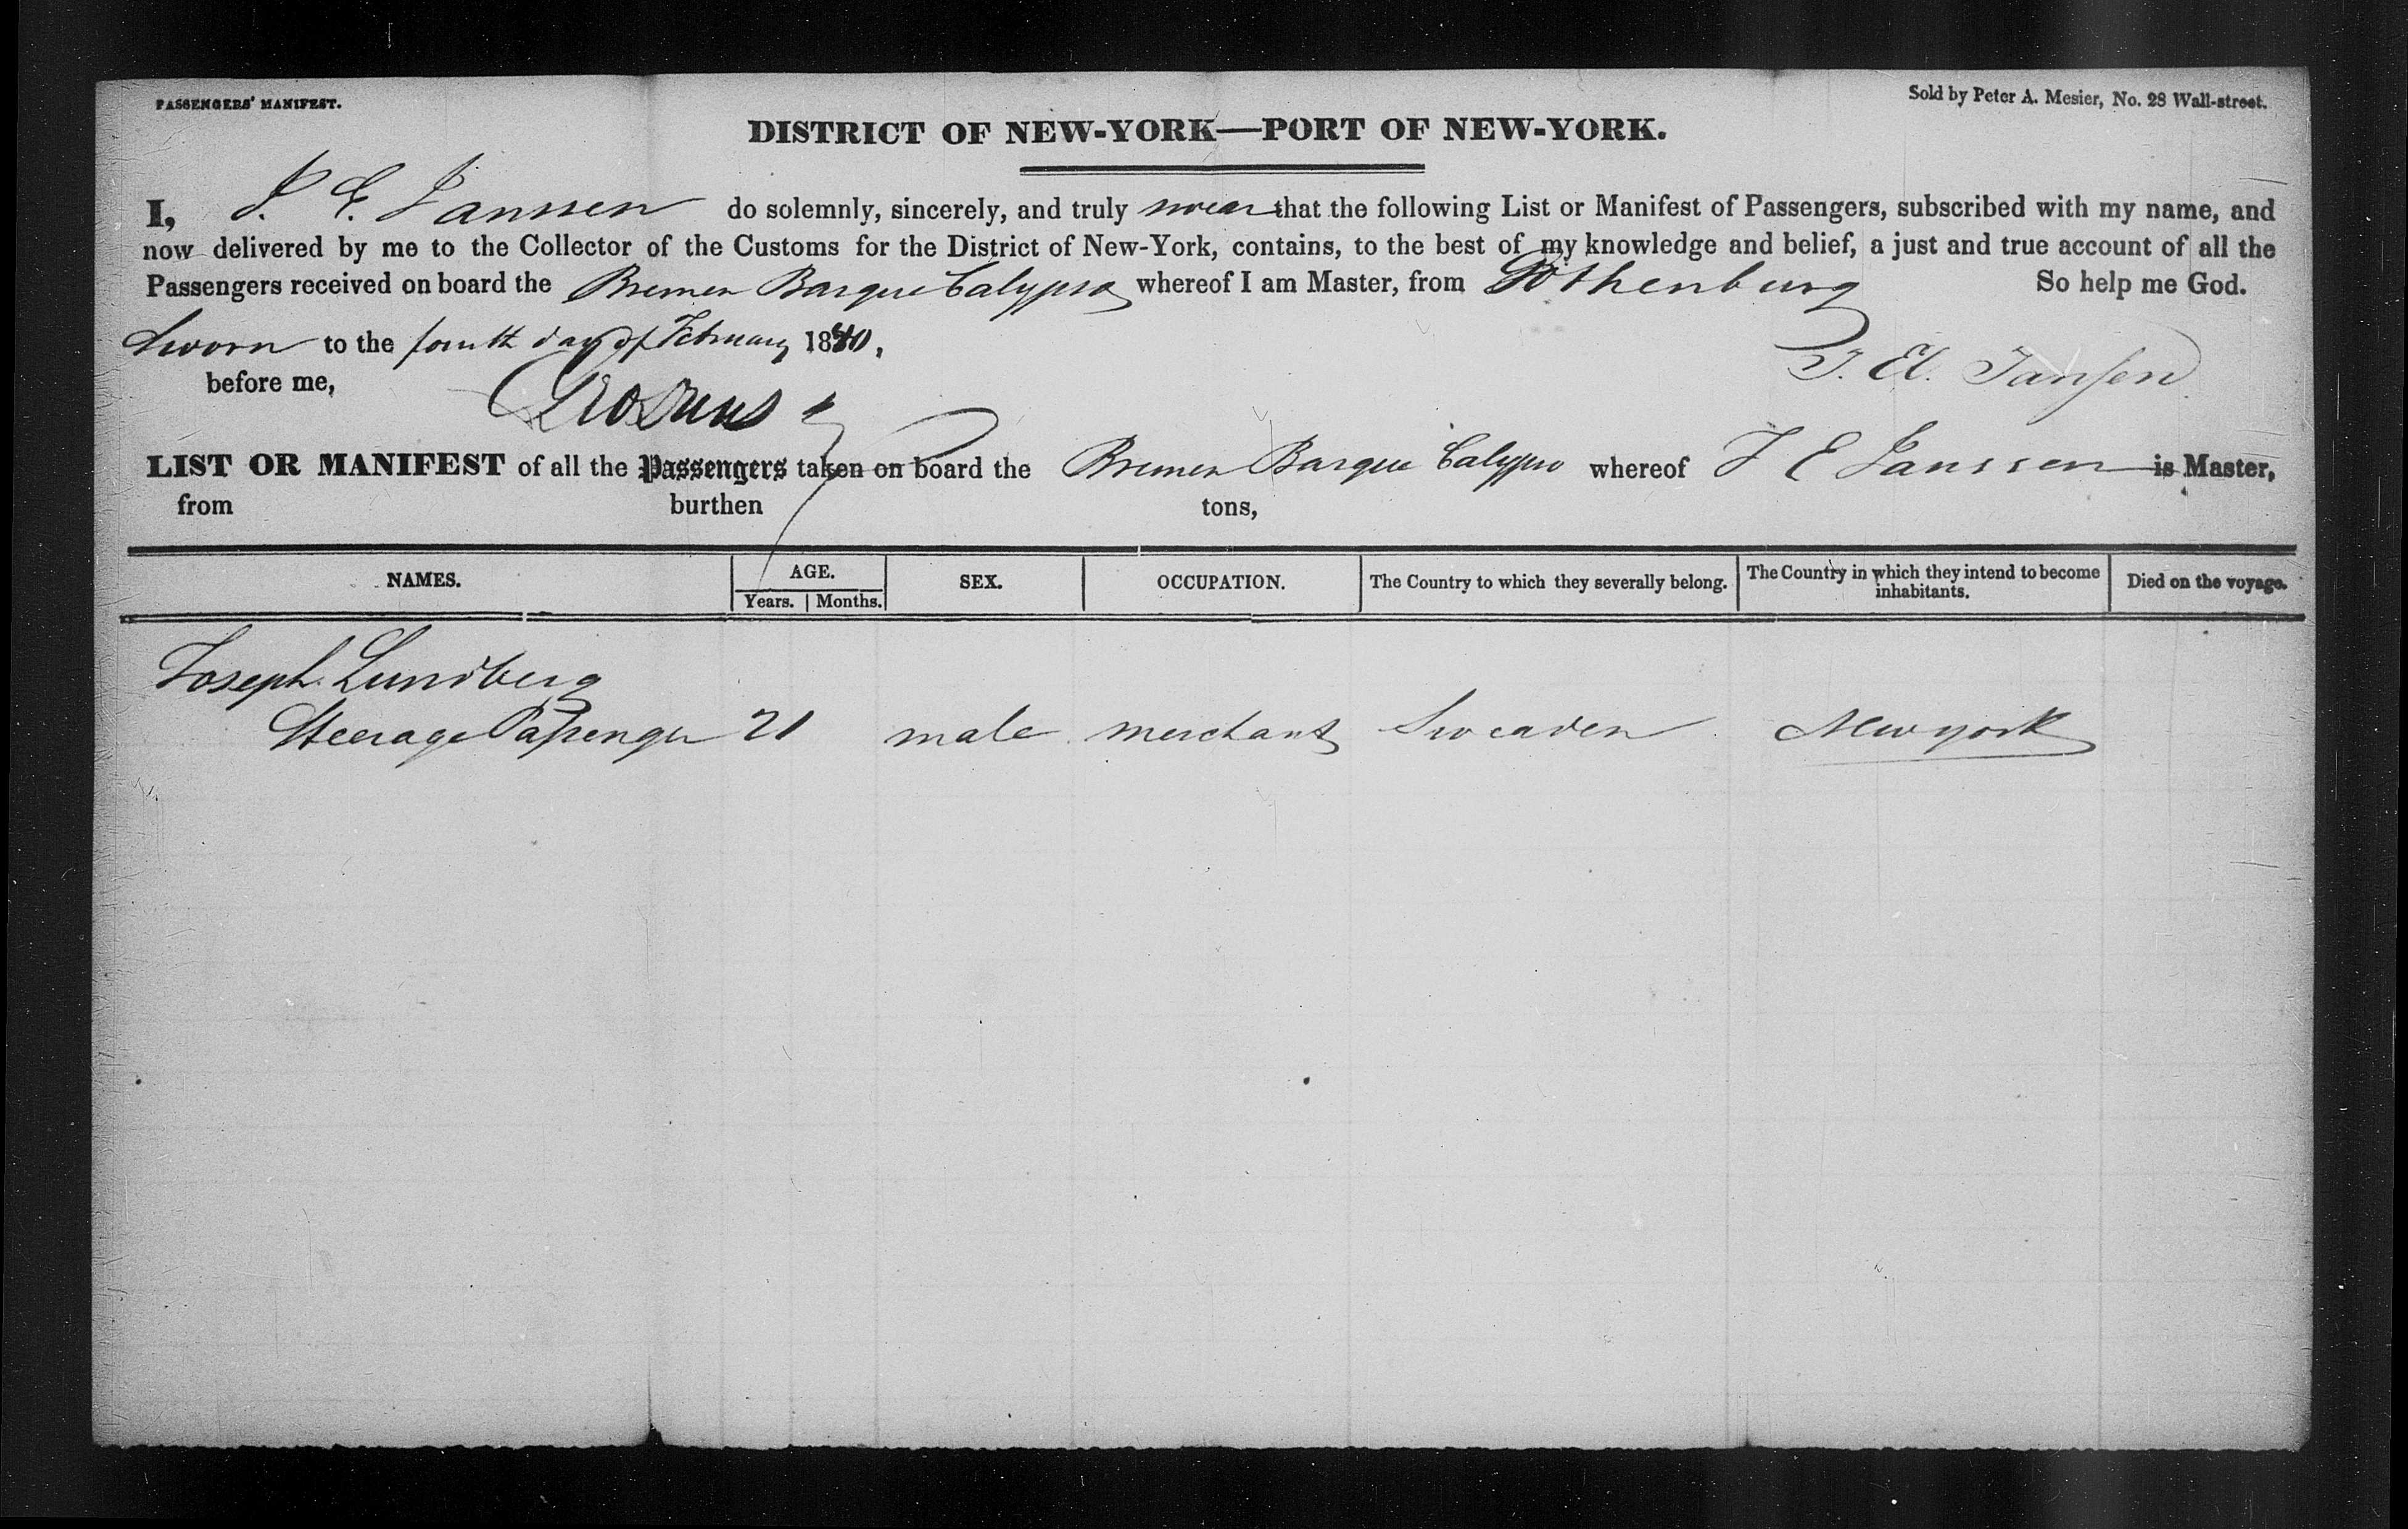 PASSENGERS' MANIFEST.
Sold by Peter A. Mesier, No. 28 Wall-street.
DISTRICT OF NEW-YORK—PORT OF NEW-YORK.
I, J. E. Janssen do solemnly, sincerely, and truly swear that the following List or Manifest of Passengers, subscribed with my name, and
now delivered by me to the Collector of the Customs for the District of New-York, contains, to the best of my knowledge and belief, a just and true account of all the
Passengers received on board the Bremen Barque Calypso whereof I am Master, from Gothenburg So help me God.
Sworn to the fourth day of February 1840,
before me,
J. Ed. Janſen
LIST OR MANIFEST of all the Passengers taken on board the Bremen Barque Calypso whereof J E Janssen is Master,
from burthen tons,
NAMES. AGE. SEX. OCCUPATION. The Country to which they severally belong. The Country in which they intend to become inhabitants. Died on the voyage.
Years. Months.
Joseph Lundberg
Steerage Paſsenger 21 male merchant Sweaden New york